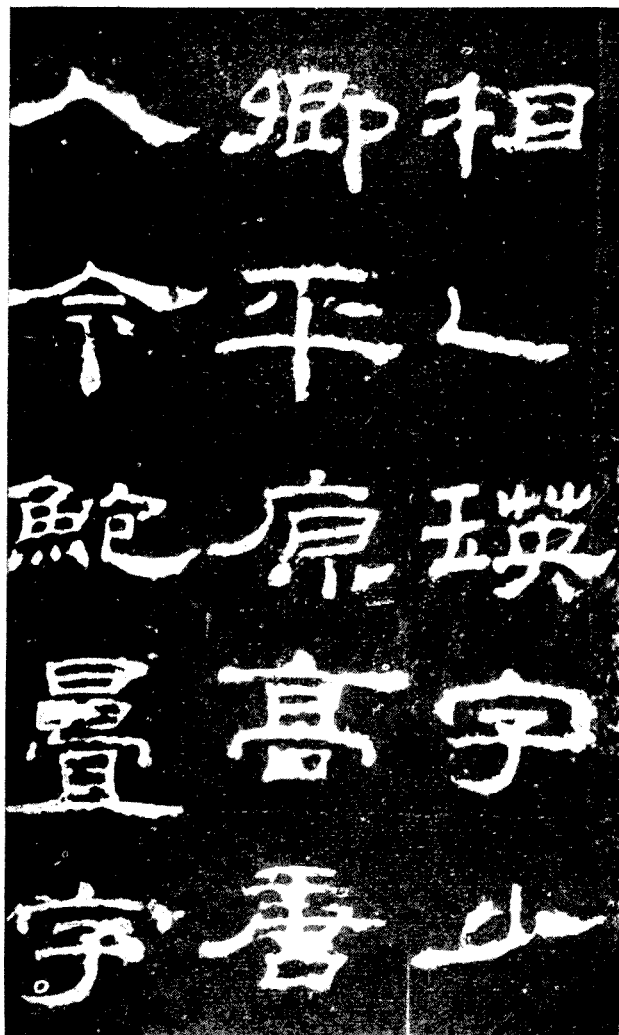 相乙瑛字少
卿平原高唐
人令鮑疊字